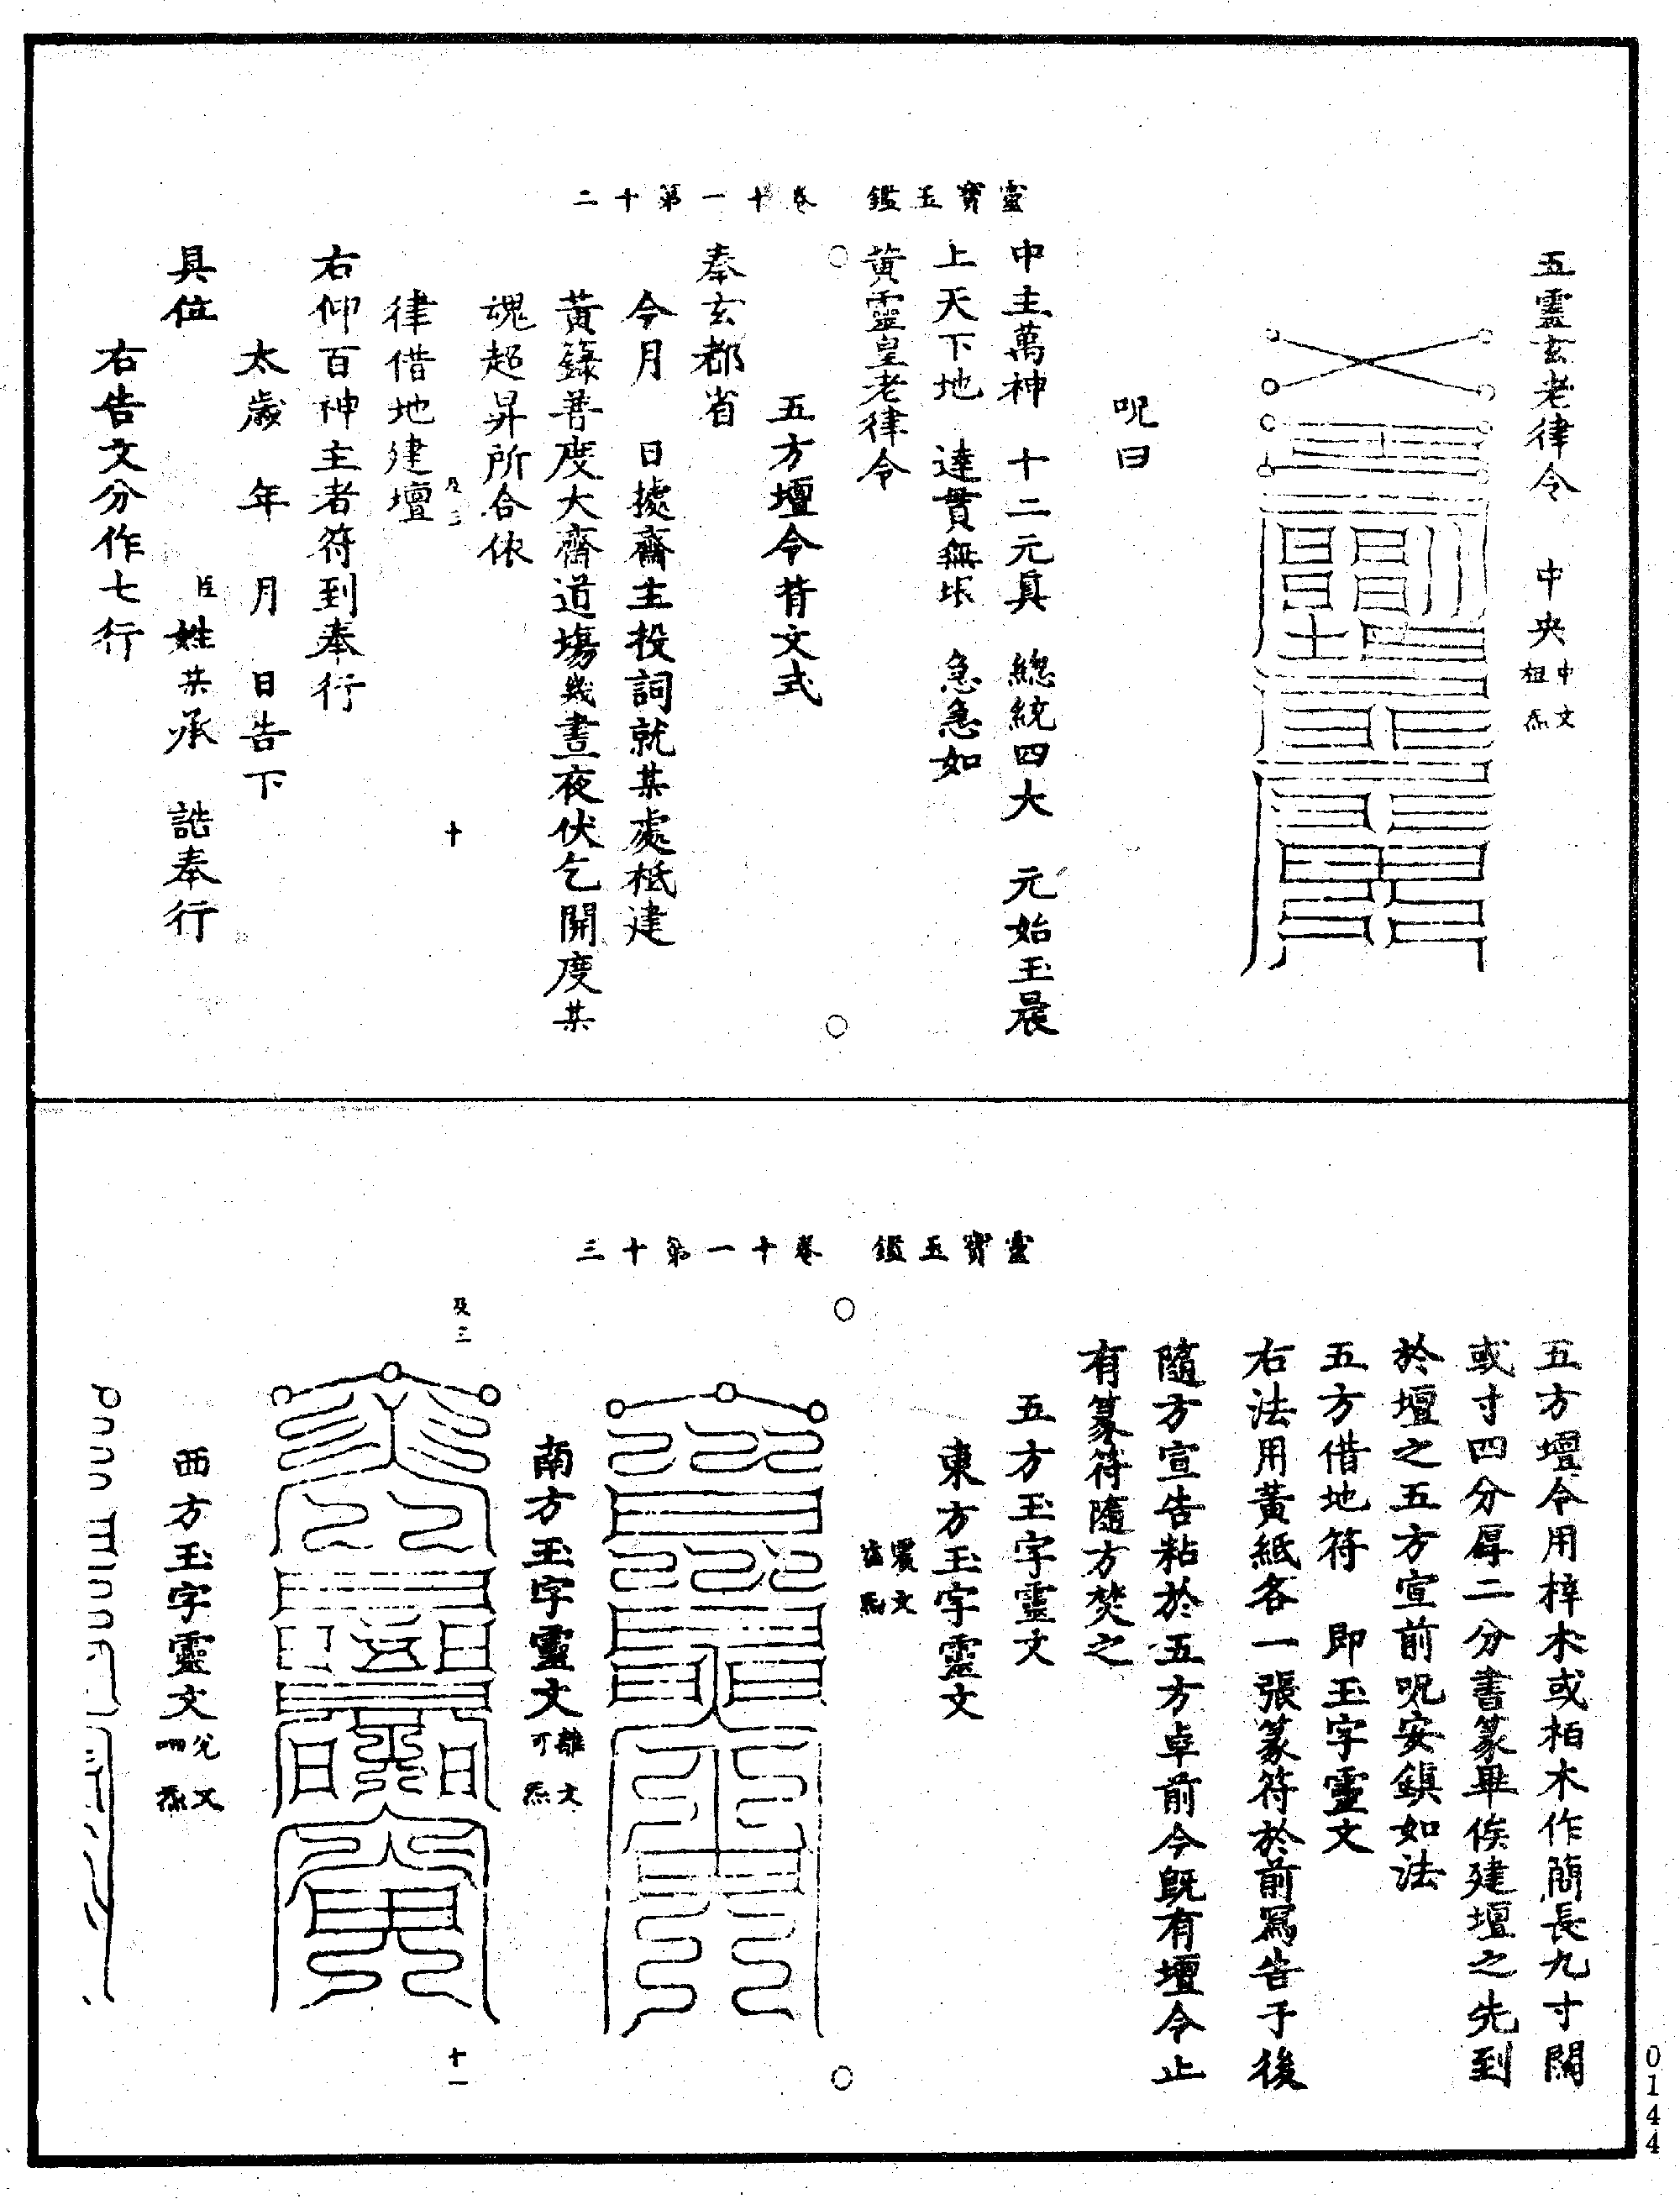 五靈玄老律令　中央中文祖炁
呪曰
中主萬神　十二元真　總統四大　元始玉晨
上天下地　達貫無垠　急急如
黃靈皇老律令
靈寶玉鑑　卷十一第十二
五方壇令背文式
奉玄都省
今月　日據齋主投詞就某處柢建
黃籙普度大齋道場幾晝夜伏乞開度某
魂超昇所合依
及三　十
律借地建壇
右仰百神主者符到奉行
太歲　年　月　日告下
具位　臣姓某承　誥奉行
右告文分作七行
五方壇令用梓木或柏木作簡長九寸闊
或寸四分厚二分書篆畢俟建壇之先到
於壇之五方宣前呪安鎮如法
五方借地符　即玉字靈文
右法用黃紙各一張篆符於前寫告于後
隨方宣告粘於五方卓前今既有壇令止
有篆符隨方焚之
五方玉字靈文
東方玉字靈文震文齒炁
靈寶玉鑑　卷十一第十三
南方玉字靈文離文可炁
及三　十一
西方玉字靈文兌文呬炁
0144